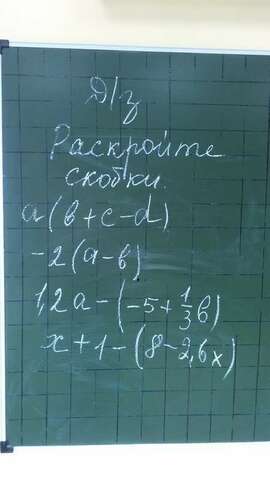 Д/з
Раскройте
скобки.
a(b+c-d)
-2(a-b)
1,2a-(-5+1/3b)
x+1-(8-2,6x)